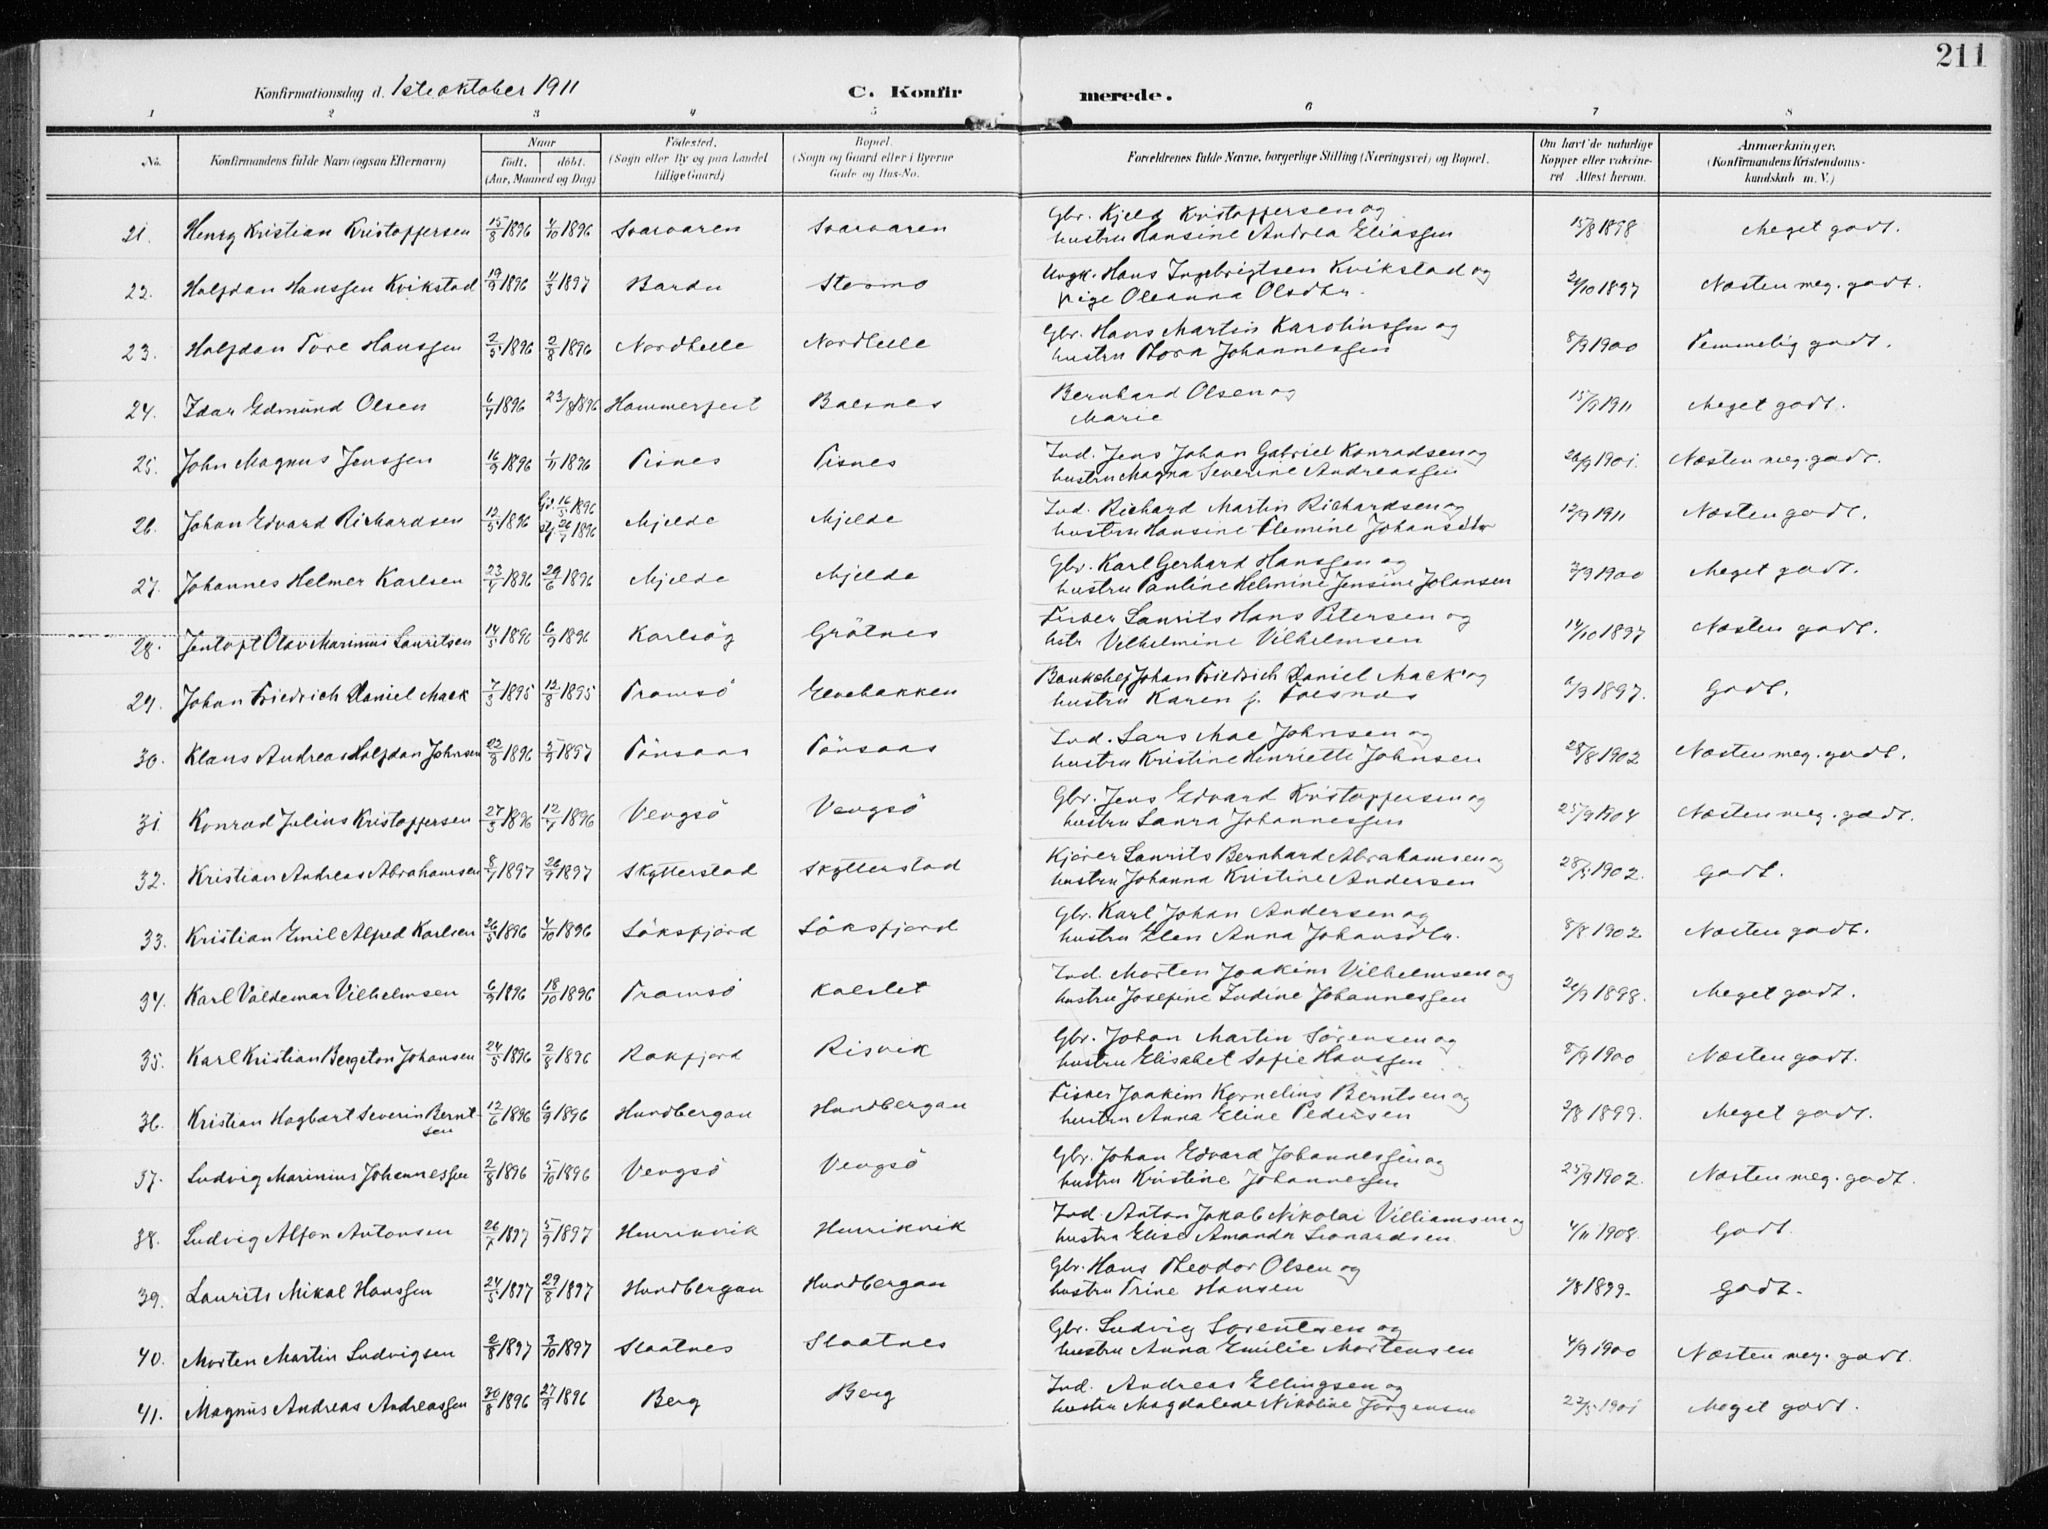 211
Konfirmationsdag d. 1ste oktober 1911 C. Konfirmerede.
1 2 3 4 5 6 7 8
No. Konfirmandens fulde Navn (ogsaa Efternavn) Naar født. døbt. (Aar, Maaned og Dag) Fødested. (Sogn eller By og paa Landet tillige Gaard) Bopæl. (Sogn og Gaard eller i Byerne Gade og Hus-No. Forældrenes fulde Navne, borgerlige Stilling (Næringsvei) og Bopæl. Om havt de naturlige Kopper eller vakcineret Attest herom. Anmærkninger. (Konfirmandens Kristendomskundskab m. V.)
21. Henry Kristian Kristoffersen 15/8 1896 4/10 1896 Svarvaren Svarvaren Gbr. Kjeld Kristoffersen og 15/8 1898 Meget godt.
hustru Hansine Andrea Eliassen
22. Halfdan Hanssen Kvikstad 19/9 1896 1/3 1897 Bardu Stormo Ungk. Hans Ingebrigtsen Kvikstad og 2/10 1897 Næsten meg. godt.
pige Oleanna Olsdtr.
23. Halfdan Tore Hanssen 2/5 1896 2/8 1896 Nordhelle Nordhelle Gbr. Hans Martin Karolinssen og 8/9 1900 Temmelig godt.
hustru Thora Johannessen
24. Idar Edmund Olsen 6/7 1896 23/8 1896 Hammerfest Balsnes Bernhard Olsen og 15/9 1911 Meget godt.
Marie
25. John Magnus Jenssen 16/9 1896 1/11 1896 Tisnes Tisnes Ind. Jens Johan Gabriel Konradsen og 26/9 1901. Næsten meg. godt.
hustru Magna Severine Andreassen
26. Johan Edvard Richardsen 12/5 1896 Gd. 16/5 1896 Mjelde Mjelde Ind. Richard Martin Richardsen og 12/9 1911 Næsten godt.
stf. 26/7 1896 hustru Hansine Flemine Johansdtr
27. Johannes Helmer Karlsen 23/4 1896 29/6 1896 Mjelde Mjelde Gbr. Karl Gerhard Hanssen og 3/9 1900 Meget godt.
hustru Pauline Helmine Jensine Johansen
28. Jentoft Olav Marinius Lauritsen 14/5 1896 6/9 1896 Karlsøy Grøtnes Fisker Laurits Hans Petersen og 14/10 1897 Næsten godt.
hstr Vilhelmine Vilhelmsen
29. Johan Friedrich Daniel Mack 7/3 1895 12/8 1895 Tromsø Elvebakken Bankchef Johan Friedrich Daniel Mack og 6/9 1897. Godt.
hustru Karen f. Foesnæs
30. Klaus Andreas Halfdan Johnsen 22/8 1896 5/9 1897 Tønsaas Tønsaas Ind. Lars Moe Johnsen og 28/8 1902 Næsten meg. godt.
hustru Kristine Henriette Johnsen
31. Konrad Julius Kristoffersen 27/3 1896 12/7 1896 Vengsø Vengsø Gbr. Jens Edvard Kristoffersen og 25/9 1904 Næsten meg. godt.
hustru Laura Johannessen
32. Kristian Andreas Abrahamsen 8/7 1897 26/9 1897 Skytterstad Skytterstad Kjører Laurits Bernhard Abrahamsen og 28/5 1902. Godt.
hustru Johanna Kristine Andersen
33. Kristian Emil Alfred Karlsen 26/5 1896 4/10 1896 Løksfjord Løksfjord Gbr. Karl Johan Andersen og 8/8 1902 Næsten godt.
hustru Elen Anna Johansdtr.
34. Karl Valdemar Vilhelmsen 6/9 1896 18/10 1896 Tromsø Kalslet Ind. Morten Joakim Vilhelmsen og 26/9 1898. Meget godt.
hustru Josefine Indine Johannessen
35. Karl Kristian Bergeton Johansen 24/5 1896 2/8 1896 Rakfjord Risvik Gbr. Johan Martin Sørensen og 8/9 1900 Næsten godt.
hustru Elisabet Sofie Hanssen
36. Kristian Hagbart Severin Berntsen 12/6 1896 6/9 1896 Hundbergan Hundbergan Fisker Joakim Kornelius Berntsen og 2/8 1899. Meget godt.
hustru Anna Eline Pedersen
37. Ludvig Marinius Johannessen 2/8 1896 5/10 1896 Vengsø Vengsø Gbr. Johan Edvard Johannessen og 25/9 1902. Næsten meg. godt.
hustru Kristine Johannessen
38. Ludvig Alfon Antonsen 26/7 1897 5/9 1897 Henrikvik Henrikvik Ind. Anton Jakob Nikolai Villiamsen og 4/11 1908. Godt.
hustru Elise Amanda Leonardsen
39. Laurits Mikal Hanssen 24/5 1897 29/8 1897 Hundbergan Hundbergan Gbr. Hans Theodor Olsen og 1/8 1899. Godt.
hustru Trine Hansen
40. Morten Martin Ludvigsen 2/8 1897 3/10 1897 Slaatnes Slaatnes Gbr. Ludvig Lorentsen og 4/9 1900 Næsten meg. godt.
hustru Anna Emilie Mortensen
41. Magnus Andreas Andreassen 30/8 1896 27/9 1896 Berg Berg Ind. Andreas Ellingsen og 22/5 1901 Meget godt.
hustru Magdalene Nikoline Jørgensen